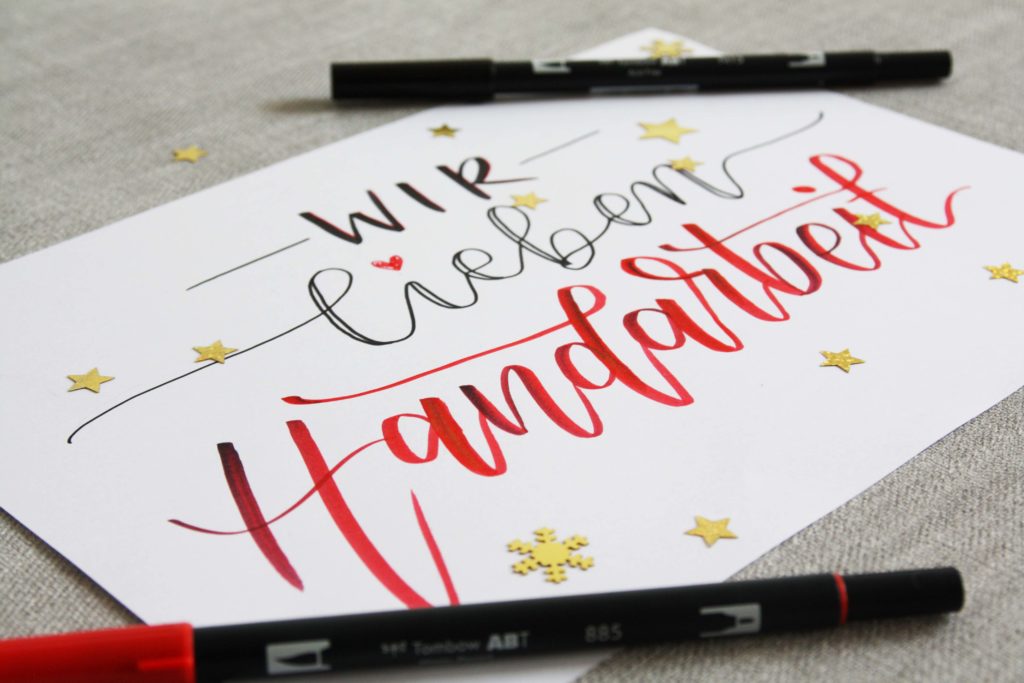 WIR
lieben
Handarbeit
Tombow ABT 885